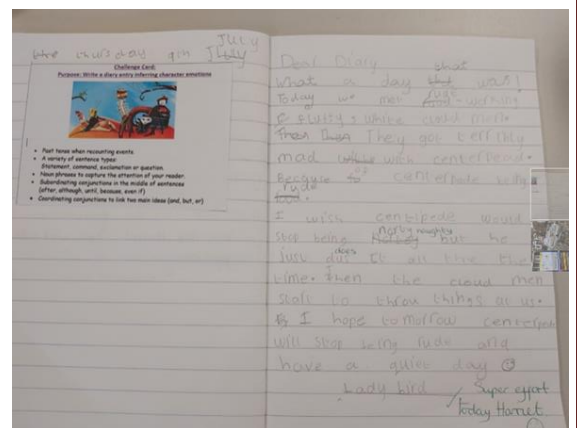 the Thursday 9th July
JULY
Challenge Card:
Purpose: Write a diary entry inferring character emotions
Past tense when recounting events.
A variety of sentence types:
Statement, command, exclamation or question.
Noun phrases to capture the attention of your reader.
Subordinating conjunctions in the middle of sentences
(after, although, until, because, even if)
Coordinating conjunctions to link two main ideas (and, but, or)
Dear Diary
that
What a day that was!
rude
Today we met
fluffy, white cloud men.
Then They got terribly
mad with centerpead.
Because of centerpede being
rude
I wish centipede would
norty naughty
stop being but he
does
just dus it all the
time. Then the cloud men
start to throw things at us.
I hope tomorrow
will stop being rude and
have a quiet day
Lady bird
Super effort
today Harriet